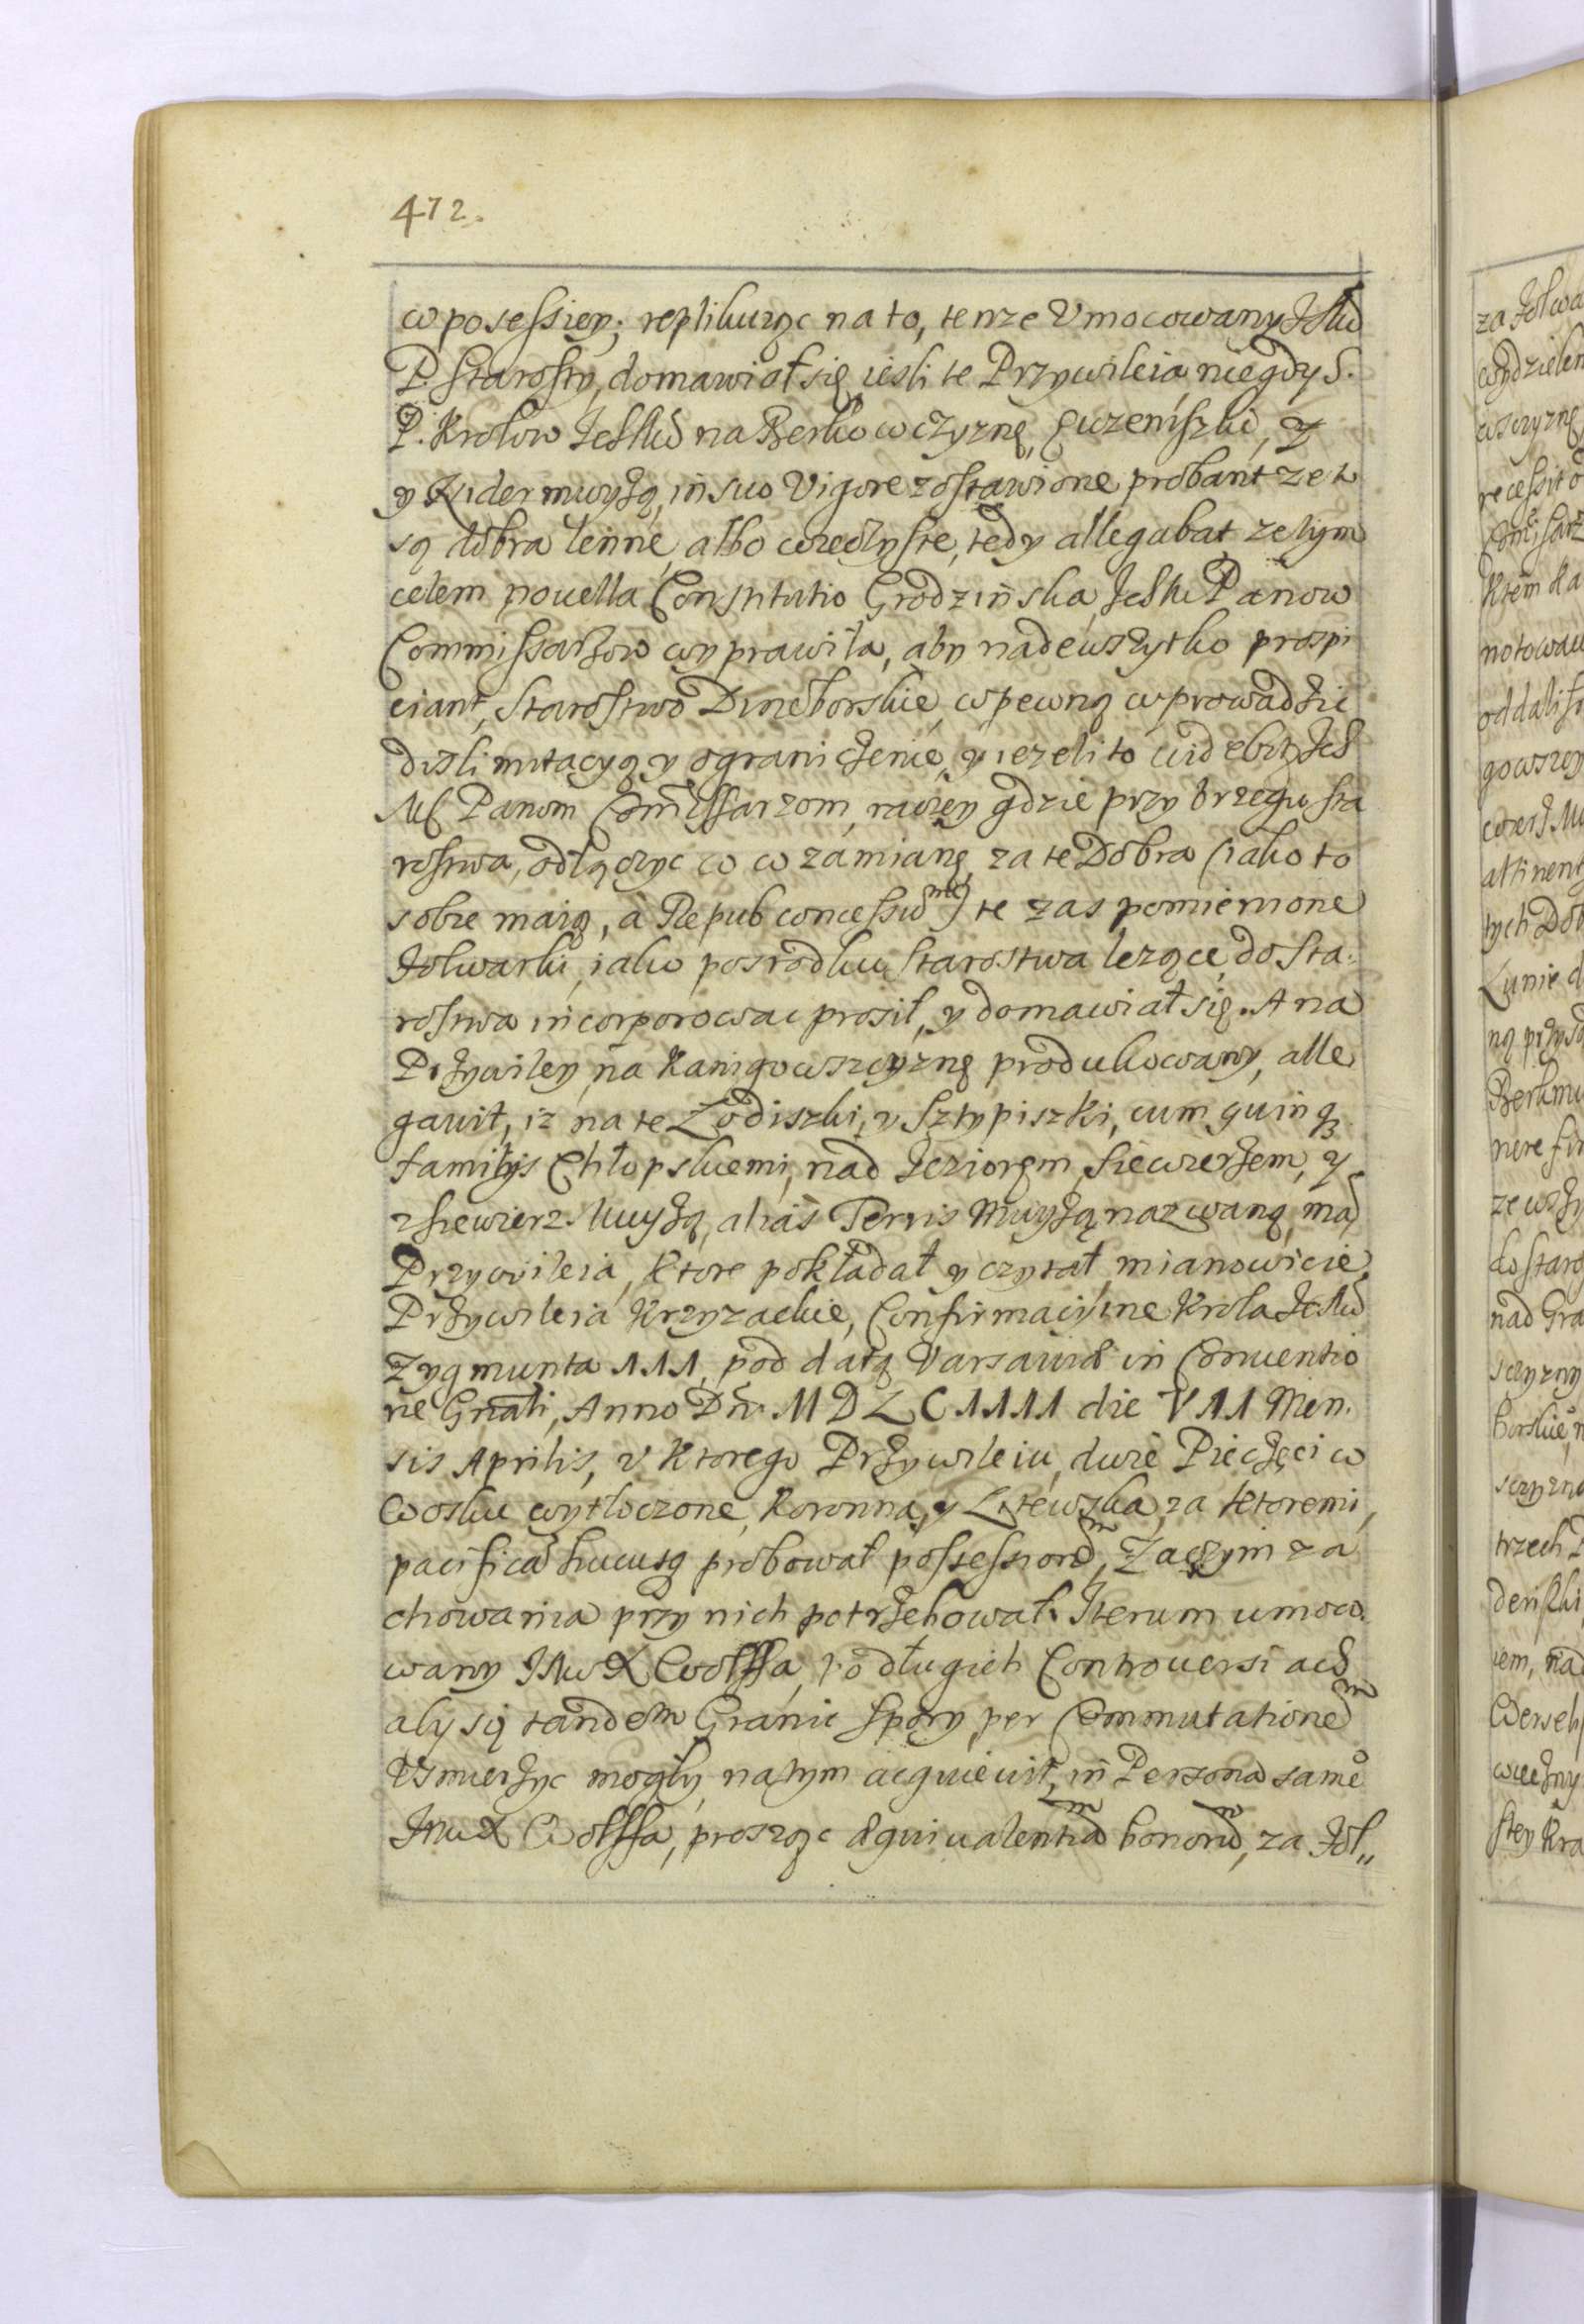 472.
w posessiey; replikuiąc na to, tenze Vmocowany JMci
P. Starosty, domawiał się iesli te Przywileia niegdy S.
P. Krolow IchMci na Berkowczyznę, Guzeniszki, y
y Nidermuyżą, in suo Vigore zostawione probant ze to
są dobra lenne, albo wieczyste, tedy allegabat ze tym
celem novella Constitutio Grodzinska, IchM Panow
Commissarzow wyprawiła, aby nadewszytko prospi
ciant, Starostwo Dineborskie, w pewną wprowadzic
dislimitacyą y ograniczenie, y iezeli to videbitr Ich
Mć Panom Commissarzom, raczey gdzie przy brzegu sta
rostwa, odłączyc co w zamianę za te Dobra (iako to
sobie maią, a Repub concessum) te zas pomienione
Folwarki, iako posrodku Starostwa lezące, do Sta-
rostwa incorporowac prosił, y domawiał się. A na
Przywiley na Kanigowszczyznę produkowany, alle
gavit, iz na te Lodiszki, y Sztypiszki, cum quinq
familijs Chłopskiemi, nad Jeziorem Siewierzem, y
z Siewierz Muyżą, alias Tervis Muyżą nazwaną, ma
Przywileia, ktore pokładał y czytał, mianowicie
Przywileia Krzyzackie, Confirmacyine Krola JeMci
Zygmunta III, pod datą Varsaviae in Conventio
ne Gnali, Anno Dni. MDLCIIII die VII Men.
sis Aprilis, v ktorego Przywileiu, dwie Pieczęci w
Wosku wytłoczone, Koronna, y Litewska, za ktoremi,
pacifica hucusq probował possessionem, Zaczym za
chowania przy nich potrzebował. Iterum umoco.
wany JMci X Wolffa, po długich Controversiach
aby się tandem Granic spory, per Commutationem
Vsmierzyc mogły, na tym acquievit, in Persona same°
JMci X Wolffa, prosząc aequivalentiam bonorum, za Fol„